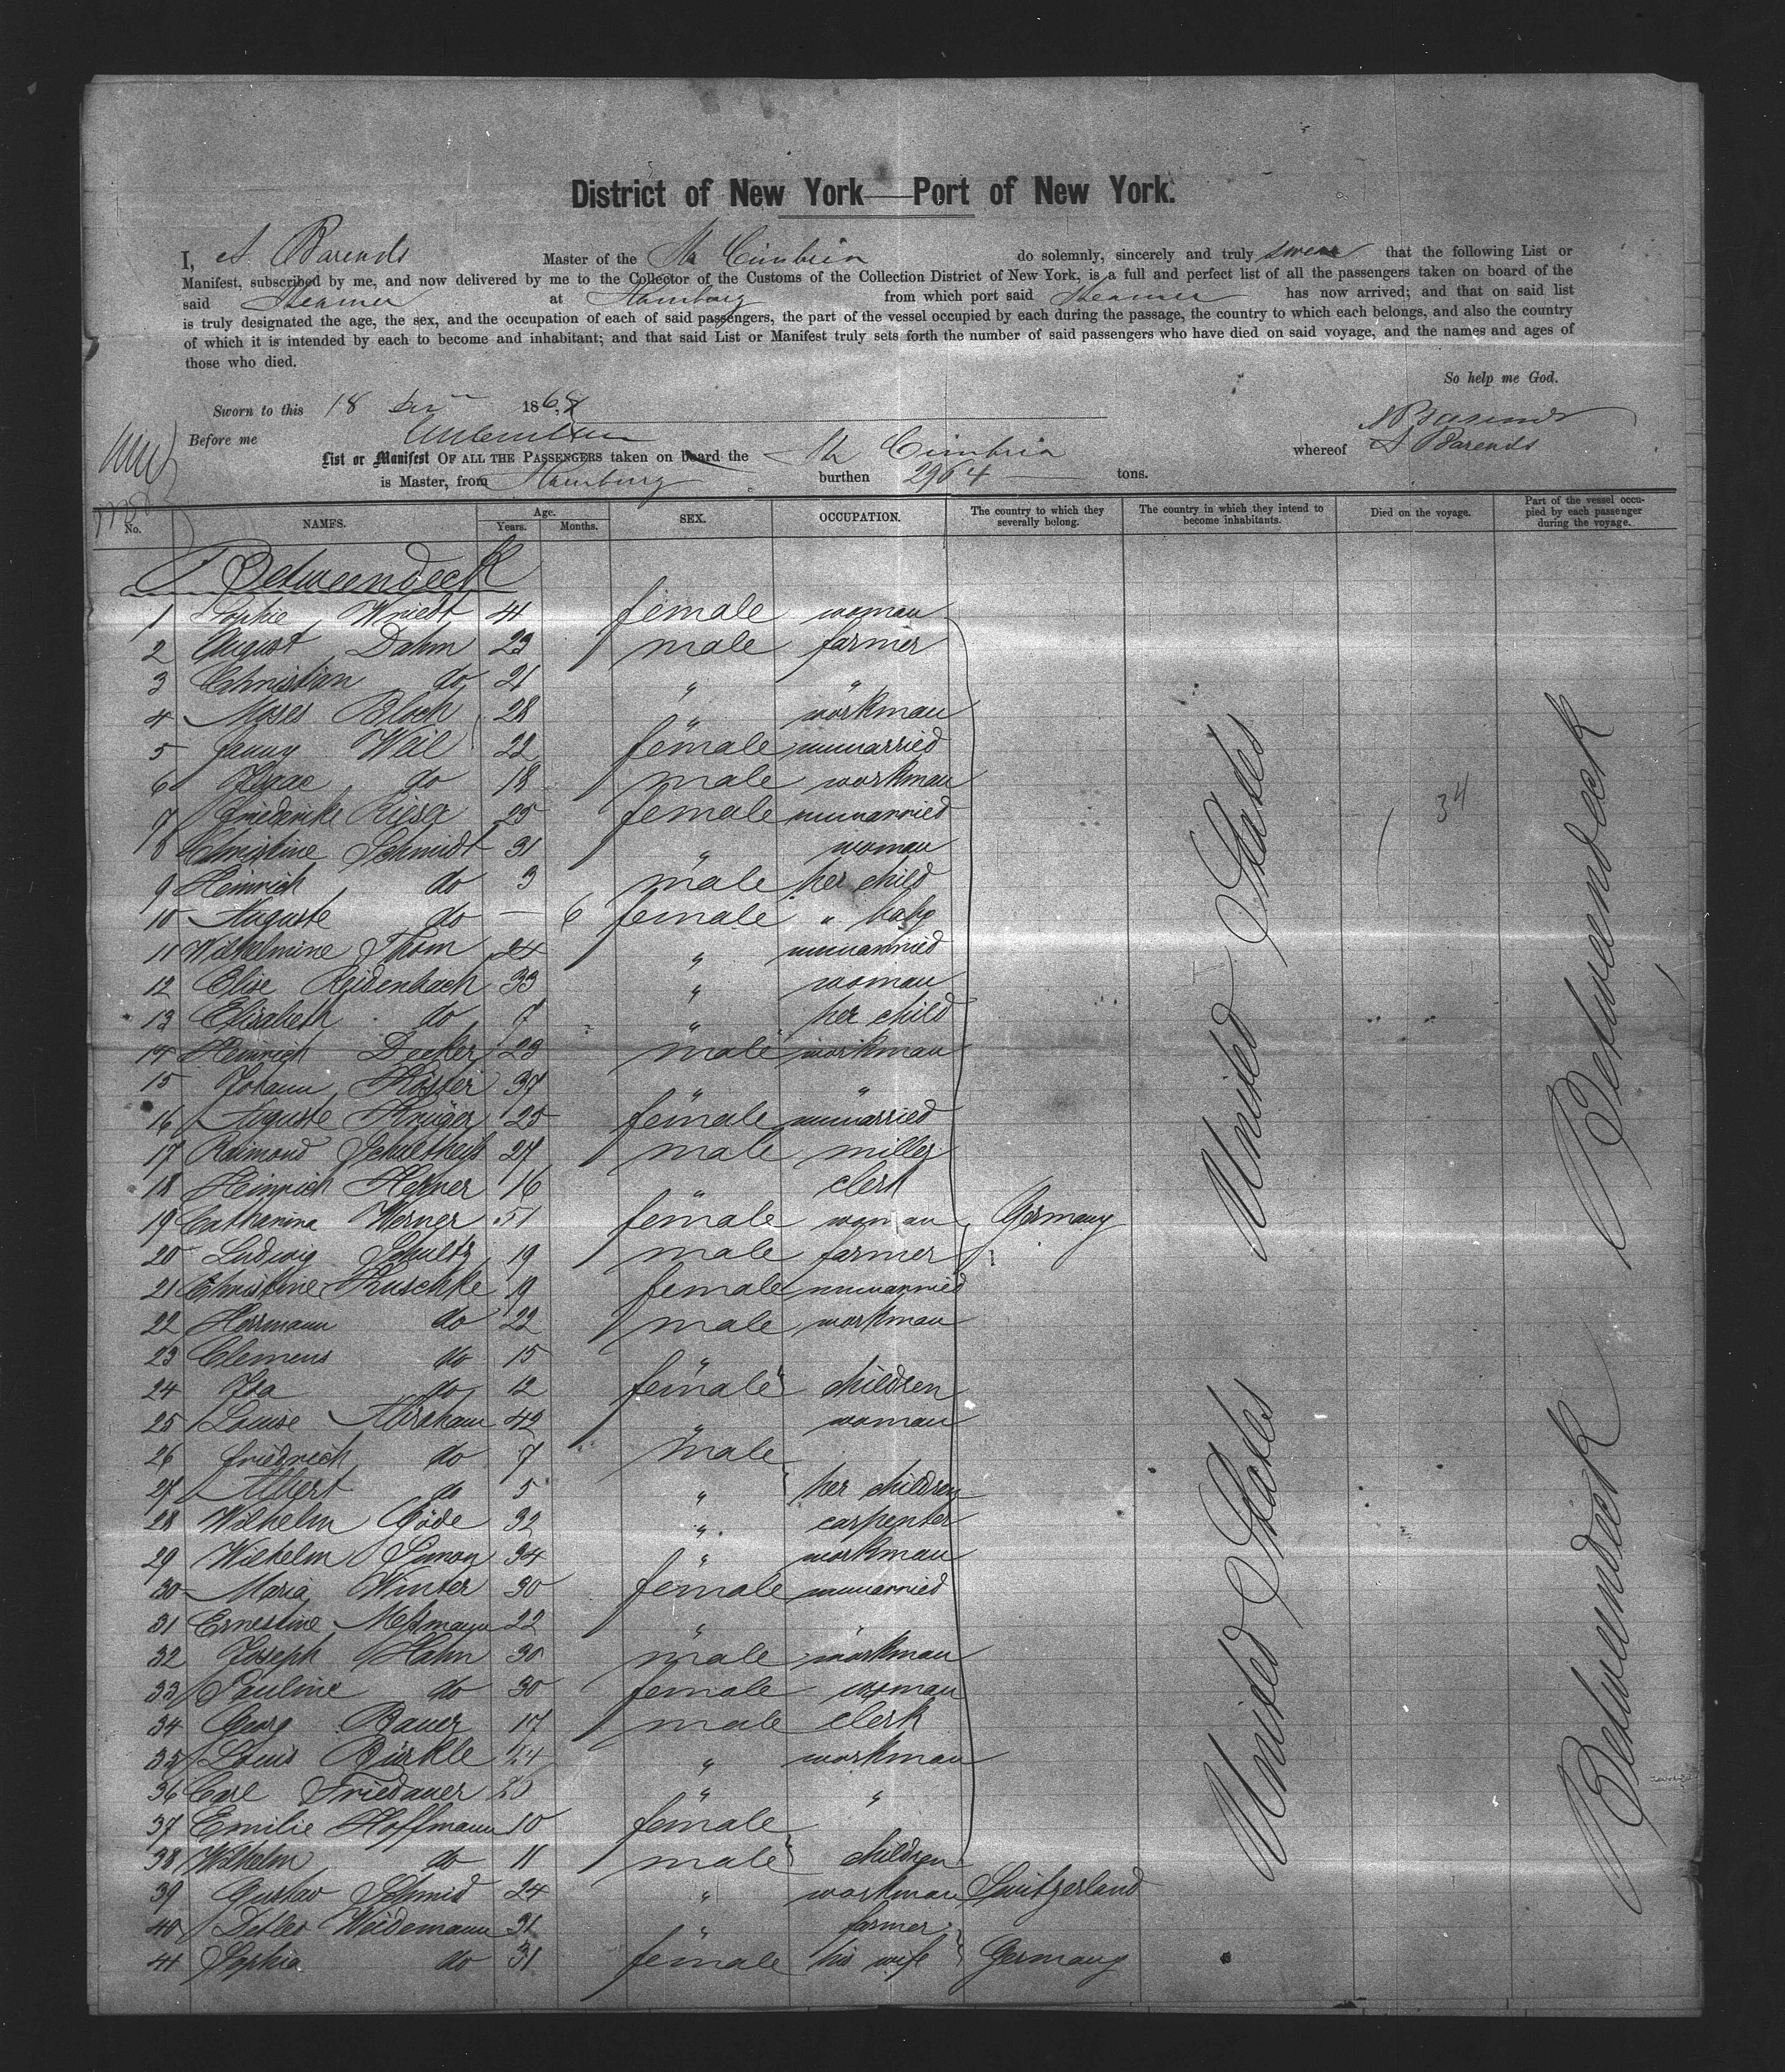 District of New York—Port of New York.
I, A Barends Master of the Str Cimbria do solemnly, sincerely and truly swear that the following List or
Manifest, subscribed by me, and now delivered by me to the Collector of the Customs of the Collection District of New York, is a full and perfect list of all the passengers taken on board of the
said Steamer at Hamburg from which port said Steamer has now arrived; and that on said list
is truly designated the age, the sex, and the occupation of each of said passengers, the part of the vessel occupied by each during the passage, the country to which each belongs, and also the country
of which it is intended by each to become and inhabitant; and that said List or Manifest truly sets forth the number of said passengers who have died on said voyage, and the names and ages of
those who died.
So help me God.
Sworn to this 18 1868
A Barends
Before me
List or Manifest OF ALL THE PASSENGERS taken on board the Str Cimbria whereof A Barends
is Master, from Hamburg burthen 2964 tons.
No. NAMES. Age. Years. Months. SEX. OCCUPATION. The country to which they severally belong. The country in which they intend to become inhabitants. Died on the voyage. Part of the vessel occupied by each passenger during the voyage.
Betweendeck
1 Sophie Wriedt 41 female woman
2 August Dahm 23 male farmer
3 Christian do 21 " "
4 Moses Bloch 28 " workman
5 Jenny Weil 22 female unmarried
6 Isaac do 18 male workman
7 Friederike Riesa 25 female unmarried
8 Christine Schmidt 31 " woman
9 Heinrich do 3 male her child
10 Auguste do — 6 female " baby
11 Wilhelmine Thom 24 " unmarried
12 Elise Reidenbach 33 " woman
13 Elisabeth do 7 " her child
14 Heinrich Decker 23 male workman
15 Johann Köster 37 " "
16 Auguste Krüger 25 female unmarried
17 Raimond Schultheiß 27 male miller
18 Heinrich Hepner 16 " clerk
19 Catharina Werner 51 female woman Germany
20 Ludwig Schultz 19 male farmer
21 Christine Kuschke 19 female unmarried
22 Herrmann do 22 male workman
23 Clemens do 15 "
24 Ida do 12 female children
25 Louise Abraham 42 " woman
26 Friedrich do 7 male
27 Albert do 5 " her children
28 Wilhelm Göde 32 " carpenter
29 Wilhelm Simon 34 " workman
30 Maria Winter 30 female unmarried
31 Ernestine 22 " "
32 Joseph Hahn 30 male workman
33 Pauline do 30 female woman
34 Georg Bauer 17 male clerk
35 Louis Bürkle 24 " workman
36 Carl Friedauer 20 " "
37 Emilie Hoffmann 10 female
38 Wilhelm do 11 male children
39 Gustav Schmid 24 " workman Switzerland
40 Detlev Weidemann 31 " farmer
41 Sophia do 31 female his wife Germany
United States
United States
34
Betweendeck
Betweendeck